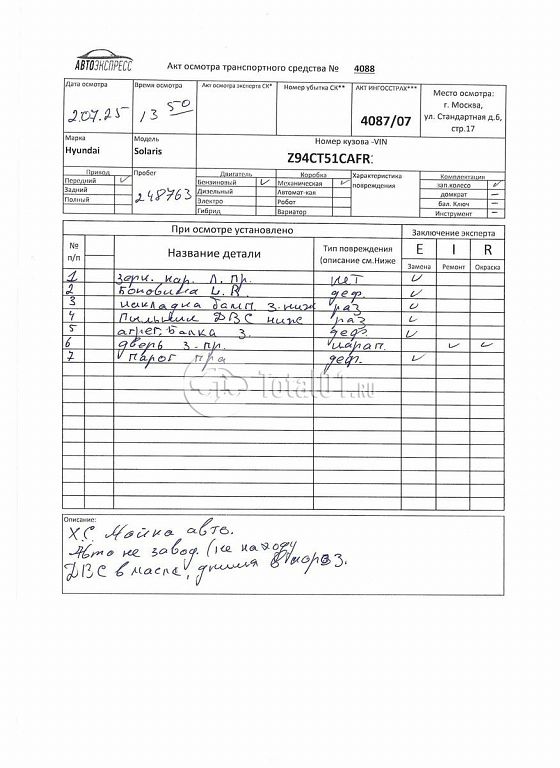 АВТОЭКСПРЕСС
Акт осмотра транспортного средства № 4088
Дата осмотра
2.07.25
Время осмотра
13 50
Акт осмотра эксперта СК*
Номер убытка СК**
АКТ ИНГОССТРАХ***
4087/07
Место осмотра:
г. Москва,
ул. Стандартная д.6,
стр.17
Марка
Hyundai
Модель
Solaris
Номер кузова -VIN
Z94CT51CAFR
Привод
Передний ✓
Задний
Полный
Пробег
248763
Двигатель
Бензиновый ✓
Дизельный
Электро
Гибрид
Коробка
Механическая ✓
Автомат-кая
Робот
Вариатор
Характеристика
повреждения
Комплектация
зап.колесо ✓
домкрат –
бал. Ключ –
Инструмент –
При осмотре установлено
Заключение эксперта
№
п/п
Название детали
Тип повреждения
(описание см.Ниже
E I R
Замена Ремонт Окраска
1 зерк. нар. Л. пр. нет ✓
2 Боковина L.R деф. ✓
3 накладка бамп. з. ниж раз ✓
4 Пыльник ДВС ниж раз ✓
5 агрег. Балка з. деф. ✓
6 дверь з. пр. царап. ✓ ✓
7 Порог пра деф. ✓
Total01.RU
Описание:
Х.С. Мойка авто.
Авто не завод. (не на ходу
ДВС в масле,